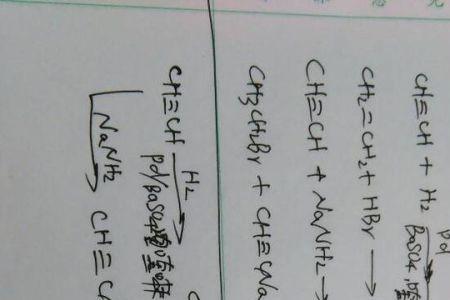 CH≡CH + H₂ Pd BaSO₄,喹
CH₂=CH₂ + HBr →
CH≡CH + NaNH₂ →
CH₃CH₂Br + CH≡CNa
CH≡CH H₂ Pd/BaSO₄ 喹啉
NaNH₂ CH≡C